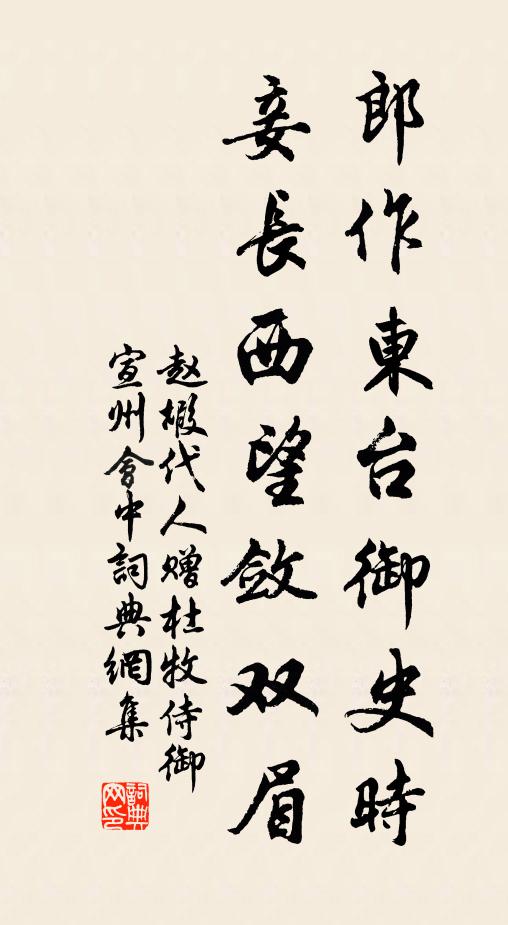 郎作東台御史時
妾長西望斂双眉
赵嘏代人赠杜牧侍御
宣州會中詞典網集
詞典
网印